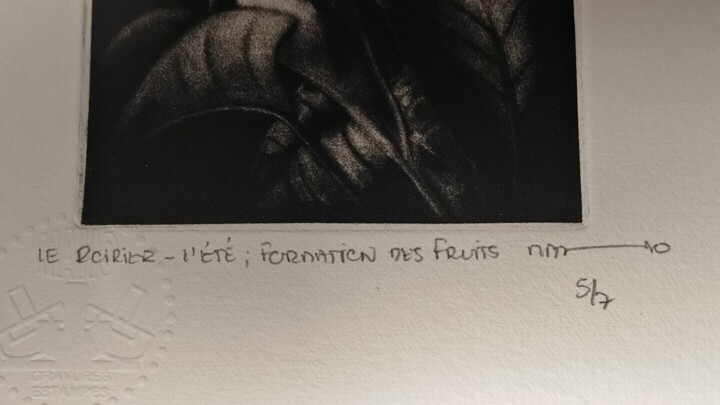 LE POIRIER - L'ÉTÉ ; FORMATION DES FRUITS
5/7
GRAVURES
ESTAMPES